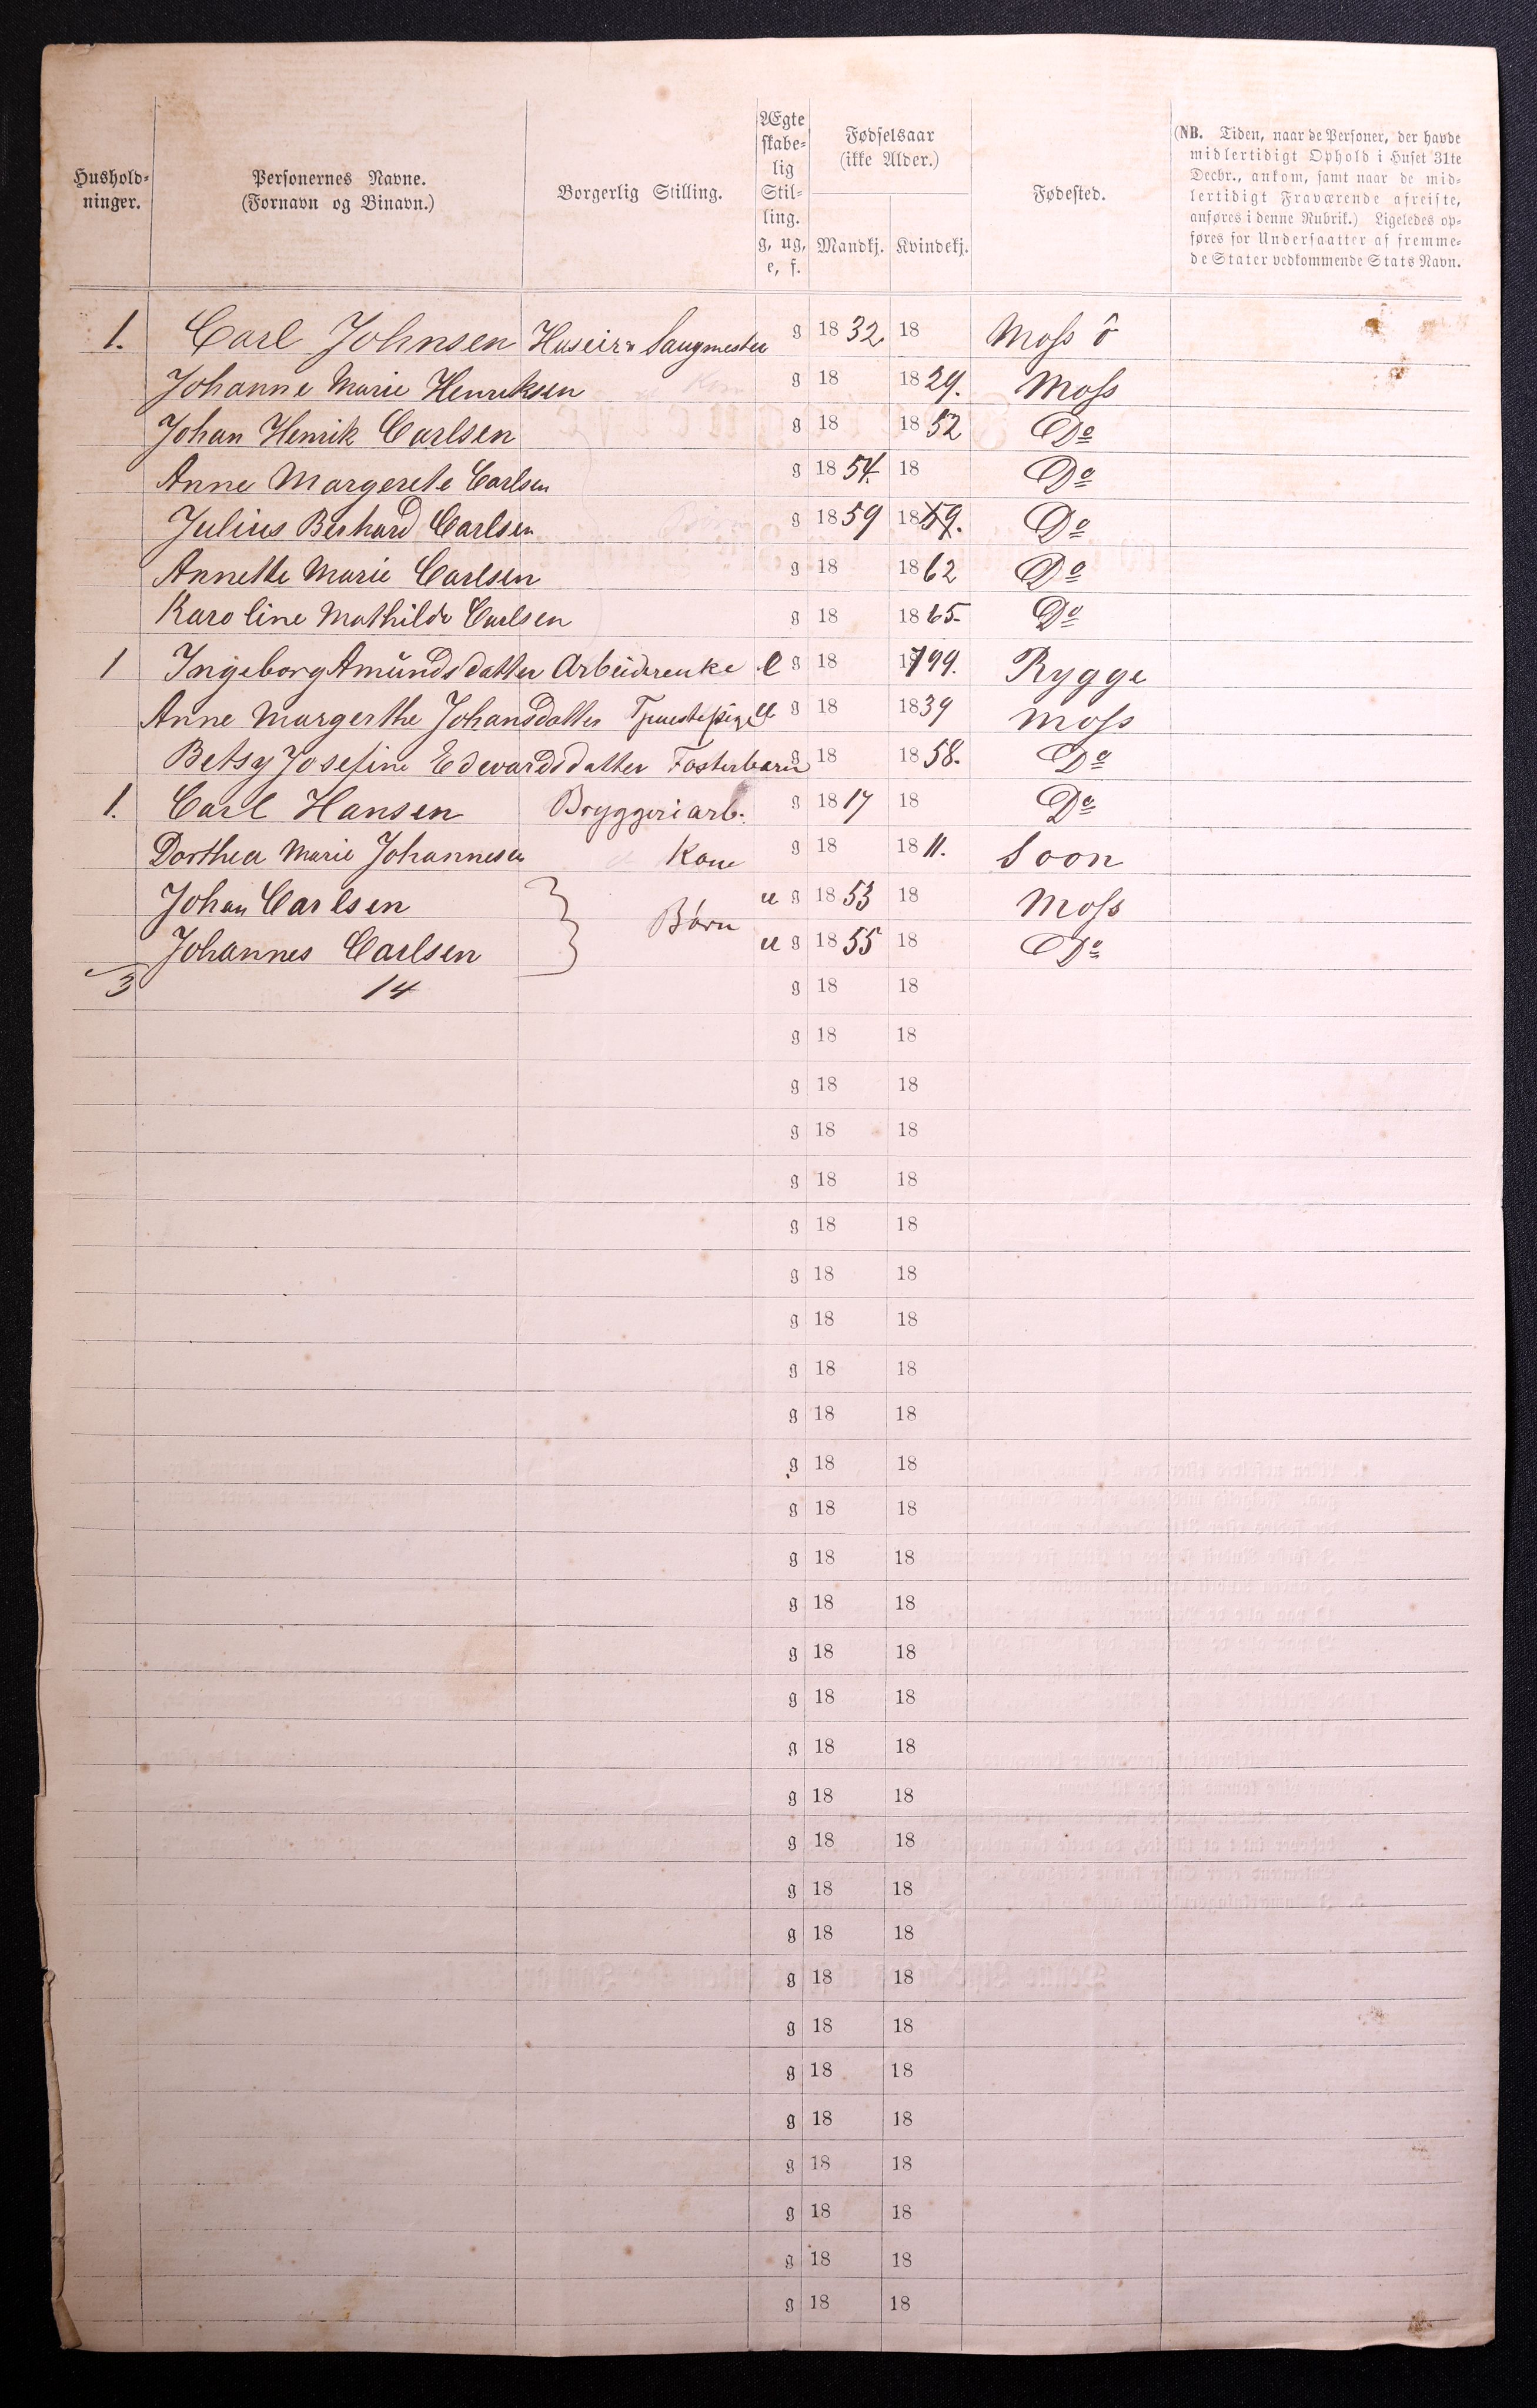 Hushold-
ninger.
Personernes Navne.
(Fornavn og Binavn.)
Borgerlig Stilling.
Ægte
skabe-
lig
Stil-
ling.
g, ug,
e, f.
Fødselsaar
(ikke Alder.)
Mandkj. Kvindekj.
Fødested.
(NB. Tiden, naar de Personer, der havde
midlertidigt Ophold i Huset 31te
Decbr., ankom, samt naar de mid-
lertidigt Fraværende afreiste,
anføres i denne Rubrik.) Ligeledes op-
føres for Undersaatter af fremme-
de Stater vedkommende Stats Navn.
1. Carl Johnsen Huseir & Saugmester g 1832 18 Moss ô
Johanne Marie Henriksen Kone g 18 1829. Moss
Johan Henrik Carlsen g 18 1852 Do
Anne Margerete Carlsen g 1854. 18 Do
Julius Berhard Carlsen Børn g 1859 1859. Do
Annette Marie Carlsen g 18 1862 Do
Karoline Mathilde Carlsen g 18 1865. Do
1 Ingeborg Amŭndsdatter Arbeiderenke e g 18 1799. Rygge
Anne Margerthe Johansdatter u g 18 1839 Moss
Betsy Josefine Edwardsdatter Fosterbarn g 18 1858. Do
1. Carl Hansen Bryggeriarb. g 1817 18 Do
Dorthea Marie Johannesen Kone g 18 1811. Soon
Johan Carlsen } Børn u g 1853 18 Moss
Johannes Carlsen u g 1855 18 Do
3 14 g 18 18
g 18 18
g 18 18
g 18 18
g 18 18
g 18 18
g 18 18
g 18 18
g 18 18
g 18 18
g 18 18
g 18 18
g 18 18
g 18 18
g 18 18
g 18 18
g 18 18
g 18 18
g 18 18
g 18 18
g 18 18
g 18 18
g 18 18
g 18 18
g 18 18
g 18 18
g 18 18
g 18 18
g 18 18